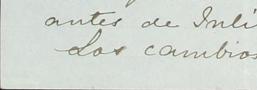 antes de Inli
Los cambios